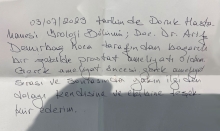 03/07/2023 tarihinde Doruk Hasta-
hanesi Üroloji Bölümü, Doç. Dr. Arif
Demirbaş Hoca tarafından başarılı
bir şekilde prostat ameliyatı oldum.
Gerek ameliyat öncesi gerek ameliyat
sırası ve sonrasında yakın ilgiden
dolayı kendisine ve ekibine teşek-
kür ederim.